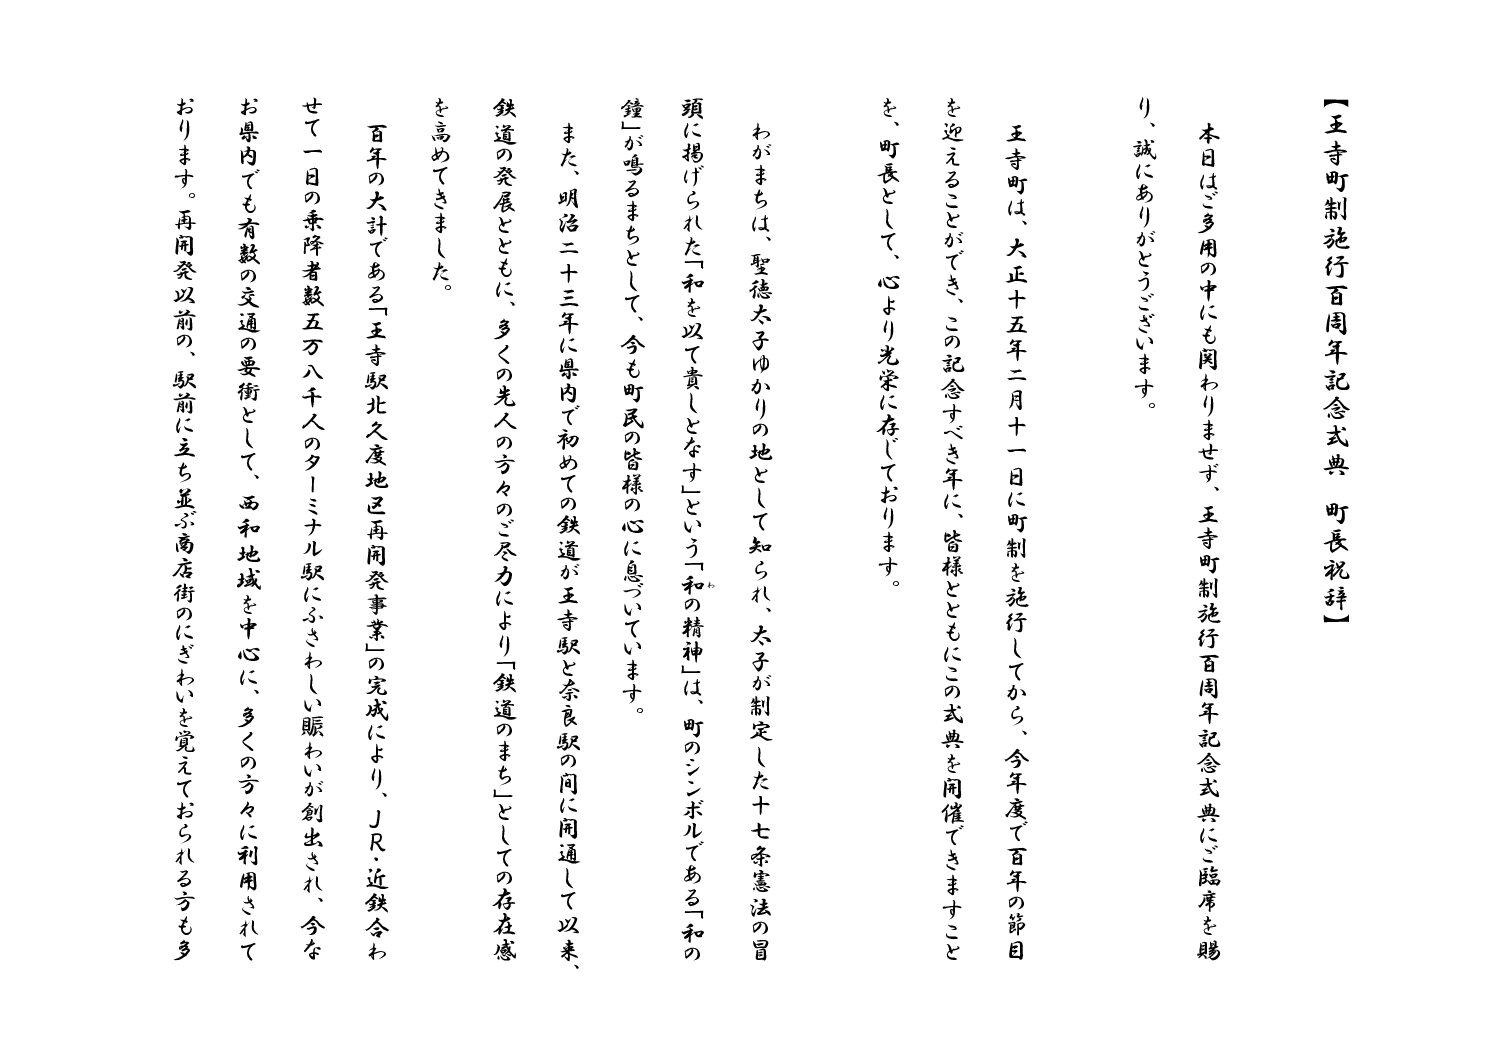 【王寺町制施行百周年記念式典　町長祝辞】
　本日はご多用の中にも関わりませず、王寺町制施行百周年記念式典にご臨席を賜
り、誠にありがとうございます。
　王寺町は、大正十五年二月十一日に町制を施行してから、今年度で百年の節目
を迎えることができ、この記念すべき年に、皆様とともにこの式典を開催できますこと
を、町長として、心より光栄に存じております。
　わがまちは、聖徳太子ゆかりの地として知られ、太子が制定した十七条憲法の冒
頭に掲げられた「和を以て貴しとなす」という「和の精神」は、町のシンボルである「和の
わ
鐘」が鳴るまちとして、今も町民の皆様の心に息づいています。
　また、明治二十三年に県内で初めての鉄道が王寺駅と奈良駅の間に開通して以来、
鉄道の発展とともに、多くの先人の方々のご尽力により「鉄道のまち」としての存在感
を高めてきました。
　百年の大計である「王寺駅北久度地区再開発事業」の完成により、ＪＲ・近鉄合わ
せて一日の乗降者数五万八千人のターミナル駅にふさわしい賑わいが創出され、今な
お県内でも有数の交通の要衝として、西和地域を中心に、多くの方々に利用されて
おります。再開発以前の、駅前に立ち並ぶ商店街のにぎわいを覚えておられる方も多